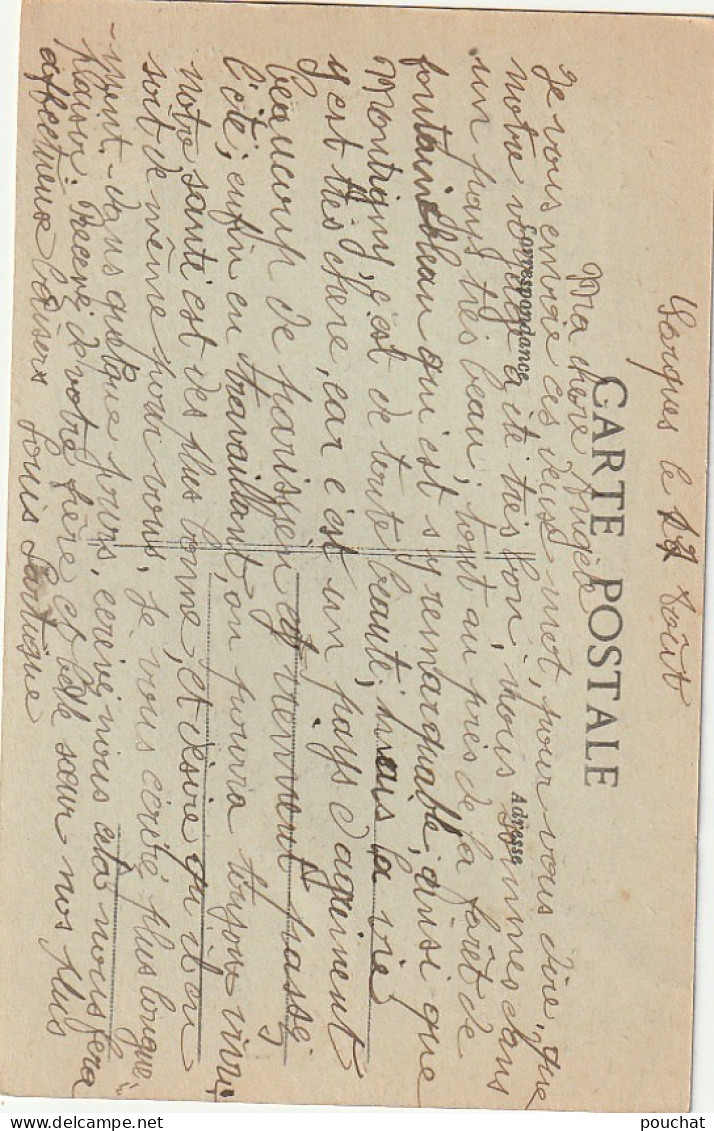 Sorques le 17 Août
CARTE POSTALE
Correspondance
Adresse
Ma chère Angèle
Je vous envoie ces deux mot, pour vous dire, que
notre voyage a été très bon, nous sommes dans
un pays très beau, tout au près de la forêt de
fontainebleau qui est sy remarquable, ainsi que
Montigny, c'est de toute beauté, mais la vie
y est très chere, car c'est un pays d'agrinent
beaucoup de parissien et viennent passé
l'été, enfin en travaillant, on pourra toujour vivre
notre santé est des plus bonne, et désire qu'il en
soit de même pour vous, Je vous écriré plus longue
-ment. dans quelque jours, ecrivé nous cela nous fera
plaisir. Recevé de votre frère et belle sœur nos plus
affectueux baisers Louis Lartigue
pouchat